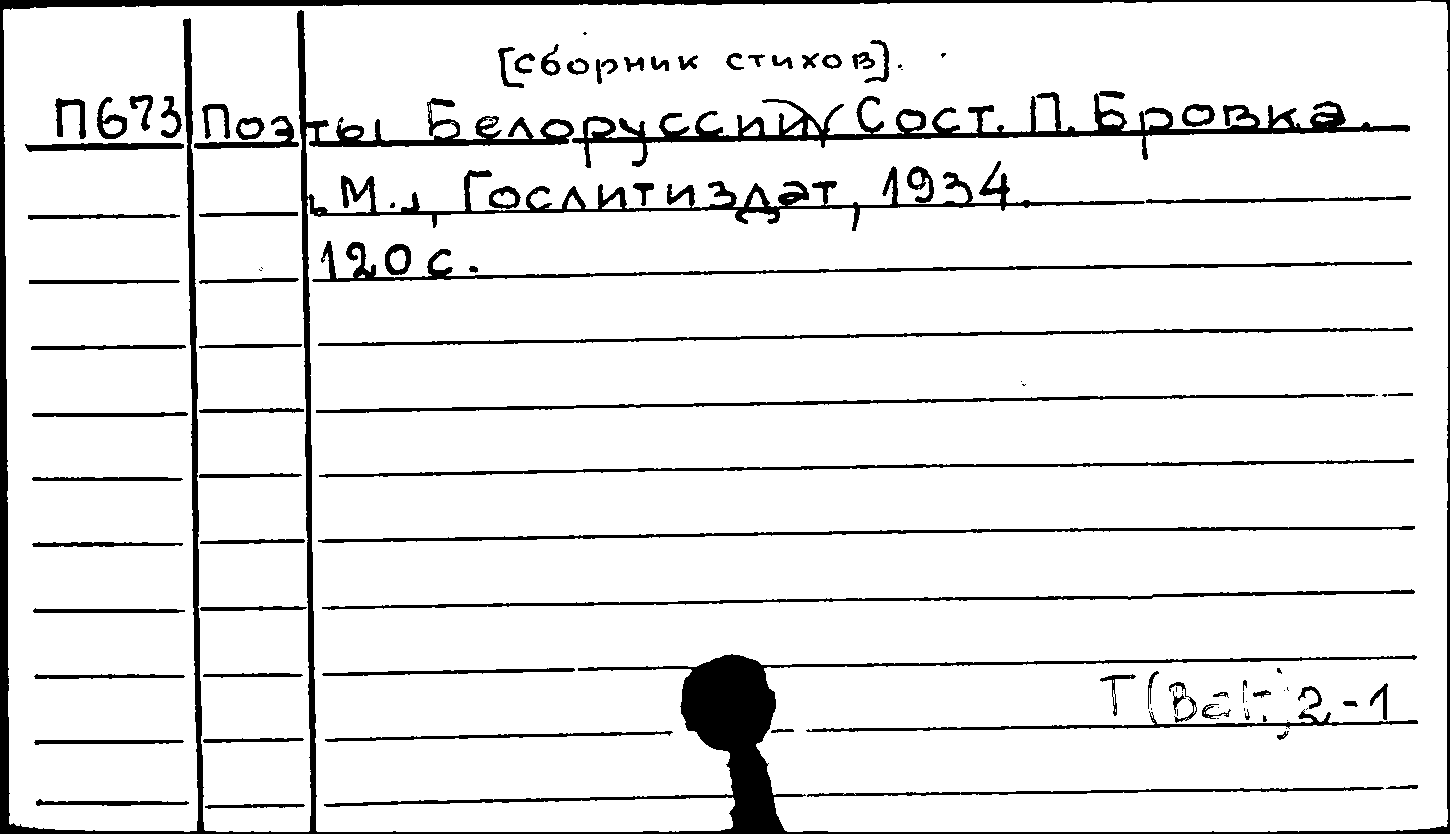 [сборник стихов].
П673 Поэты Белоруссии Сост. П. Бровка.
М., Гослитиздат, 1934.
120 с.
2-1